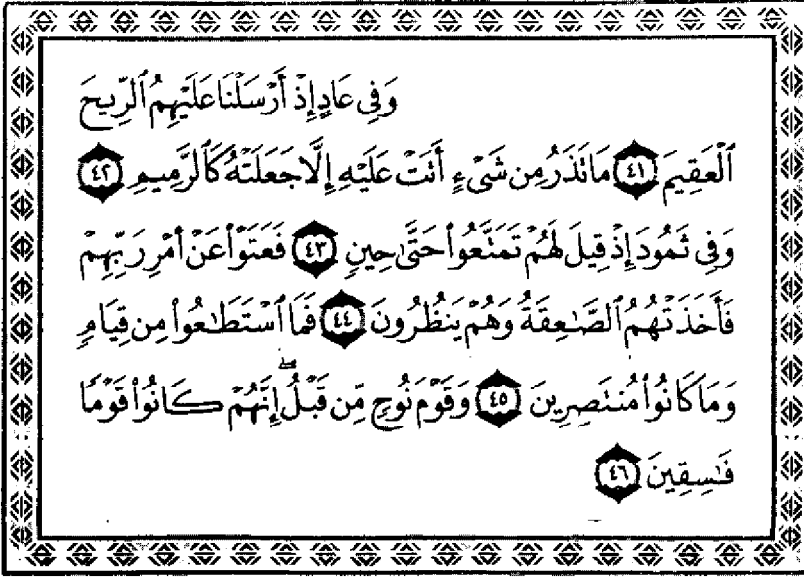 وَفِي عَادٍ إِذْ أَرْسَلْنَا عَلَيْهِمُ ٱلرِّيحَ
ٱلْعَقِيمَ ٤١ مَا تَذَرُ مِن شَىْءٍ أَتَتْ عَلَيْهِ إِلَّا جَعَلَتْهُ كَٱلرَّمِيمِ ٤٢
وَفِي ثَمُودَ إِذْ قِيلَ لَهُمْ تَمَتَّعُوا۟ حَتَّىٰ حِينٍ ٤٣ فَعَتَوْا۟ عَنْ أَمْرِ رَبِّهِمْ
فَأَخَذَتْهُمُ ٱلصَّٰعِقَةُ وَهُمْ يَنظُرُونَ ٤٤ فَمَا ٱسْتَطَٰعُوا۟ مِن قِيَامٍ
وَمَا كَانُوا۟ مُنتَصِرِينَ ٤٥ وَقَوْمَ نُوحٍ مِّن قَبْلُ ۖ إِنَّهُمْ كَانُوا۟ قَوْمًا
فَٰسِقِينَ ٤٦